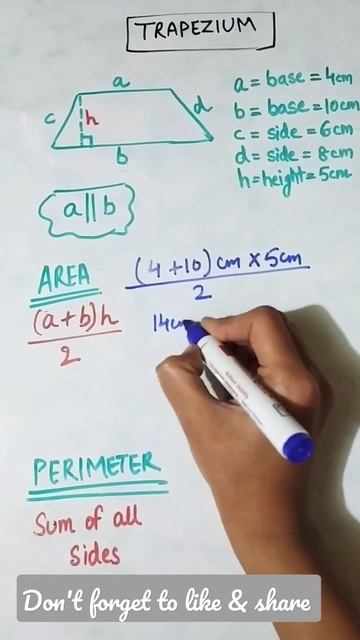 TRAPEZIUM
a
c
h
d
b
a = base = 4cm
b = base = 10cm
c = side = 6cm
d = side = 8cm
h = height = 5cm
a || b
AREA
(a+b)h
2
(4+10) cm x 5cm
2
14cm
PERIMETER
Sum of all
Sides
Don't forget to like & share